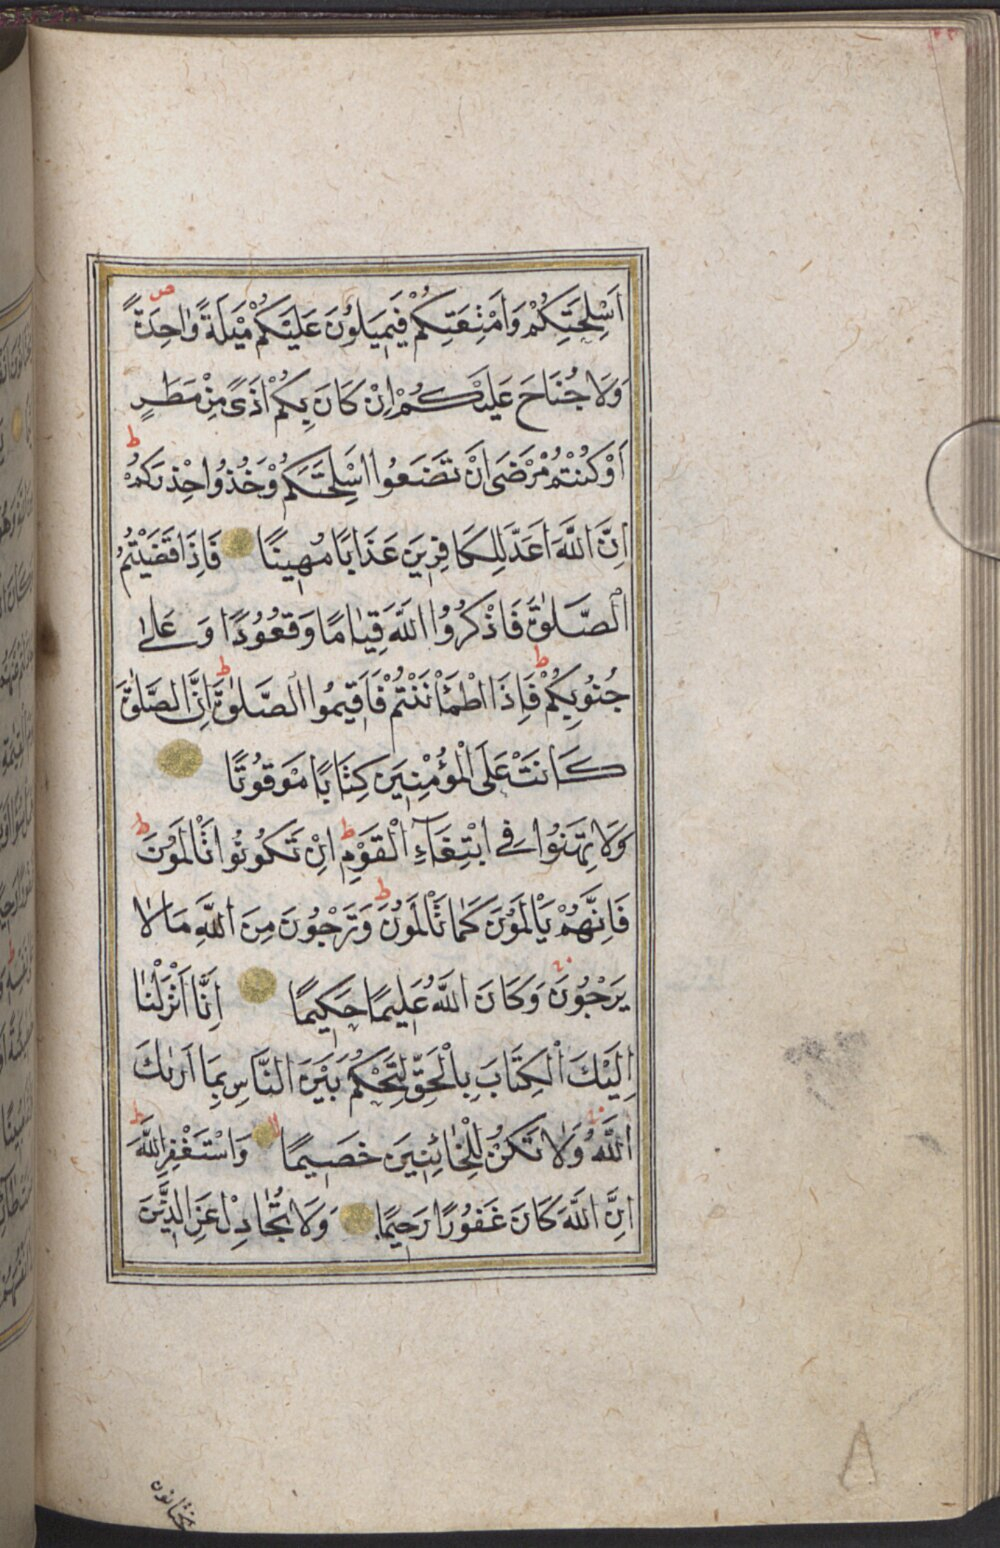 اَسْلِحَتِكُمْ وَاَمْتِعَتِكُمْ فَيَمِيلُونَ عَلَيْكُمْ مَيْلَةً وَاحِدَةً ص
وَلَا جُنَاحَ عَلَيْكُمْ اِنْ كَانَ بِكُمْ اَذًى مِنْ مَطَرٍ
اَوْ كُنْتُمْ مَرْضَى اَنْ تَضَعُوا اَسْلِحَتَكُمْ وَخُذُوا حِذْرَكُمْ ط
اِنَّ اللَّهَ اَعَدَّ لِلْكَافِرِينَ عَذَابًا مُهِينًا فَاِذَا قَضَيْتُمُ
الصَّلٰوةَ فَاذْكُرُوا اللَّهَ قِيَامًا وَقُعُودًا وَعَلٰى
جُنُوبِكُمْ ط فَاِذَا اطْمَأْنَنْتُمْ فَاَقِيمُوا الصَّلٰوةَ ط اِنَّ الصَّلٰوةَ
كَانَتْ عَلَى الْمُؤْمِنِينَ كِتَابًا مَوْقُوتًا
وَلَا تَهِنُوا فِي ابْتِغَاءِ الْقَوْمِ ط اِنْ تَكُونُوا تَأْلَمُونَ ط
فَاِنَّهُمْ يَأْلَمُونَ كَمَا تَأْلَمُونَ ط وَتَرْجُونَ مِنَ اللَّهِ مَا لَا
يَرْجُونَ وَكَانَ اللَّهُ عَلِيمًا حَكِيمًا اِنَّا اَنْزَلْنَا
اِلَيْكَ الْكِتَابَ بِالْحَقِّ لِتَحْكُمَ بَيْنَ النَّاسِ بِمَا اَرٰىكَ
اللَّهُ وَلَا تَكُنْ لِلْخَائِنِينَ خَصِيمًا لا وَاسْتَغْفِرِ اللَّهَ ط
اِنَّ اللَّهَ كَانَ غَفُورًا رَحِيمًا وَلَا تُجَادِلْ عَنِ الَّذِينَ
يختانون